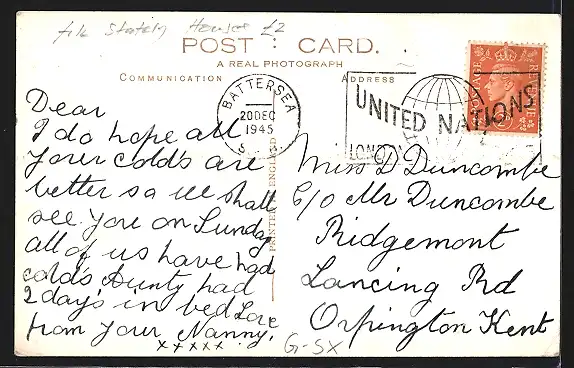 file Stately Houses £2
POST CARD.
A REAL PHOTOGRAPH
COMMUNICATION
ADDRESS
BATTERSEA
20 DEC
1945
S.
UNITED NATIONS
LONDON
POSTAGE
REVENUE
PRINTED IN ENGLAND
Dear
I do hope all
your cold's are
better so we shall
see you on Sunday
all of us have had
cold's Aunty had
2 day's in bed Love
from your Nanny.
xxxxx
Miss D Duncombe
C/o Mr Duncombe
Ridgemont
Lancing Rd
Orpington Kent
G-SX